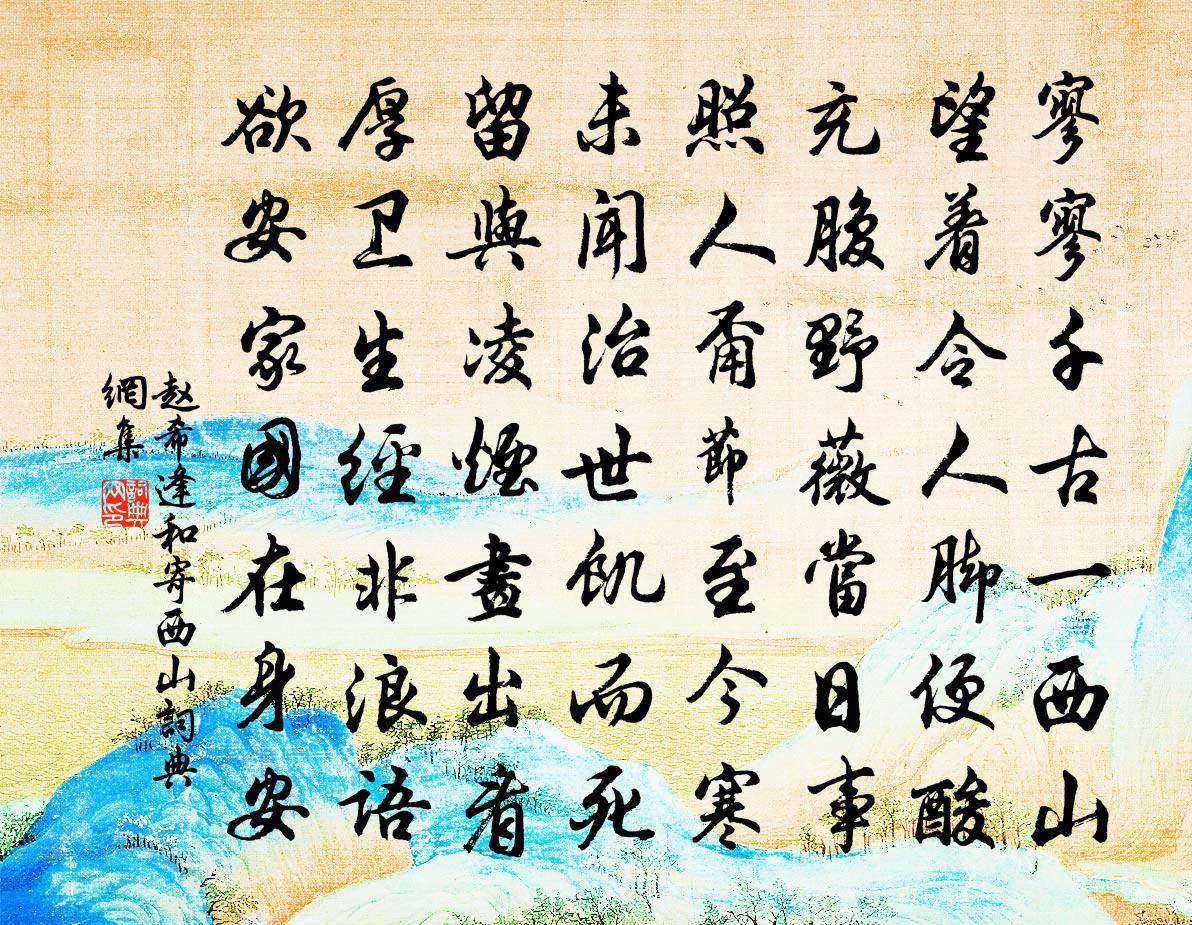 寥寥千古一西山
望着令人脚便酸
充腹野薇當日事
照人甭節至今寒
未闻治世飢而死
留與凌煙畫出看
厚卫生經非浪語
欲安家國在身安
赵希逢和寄西山詞典
網集
詞典